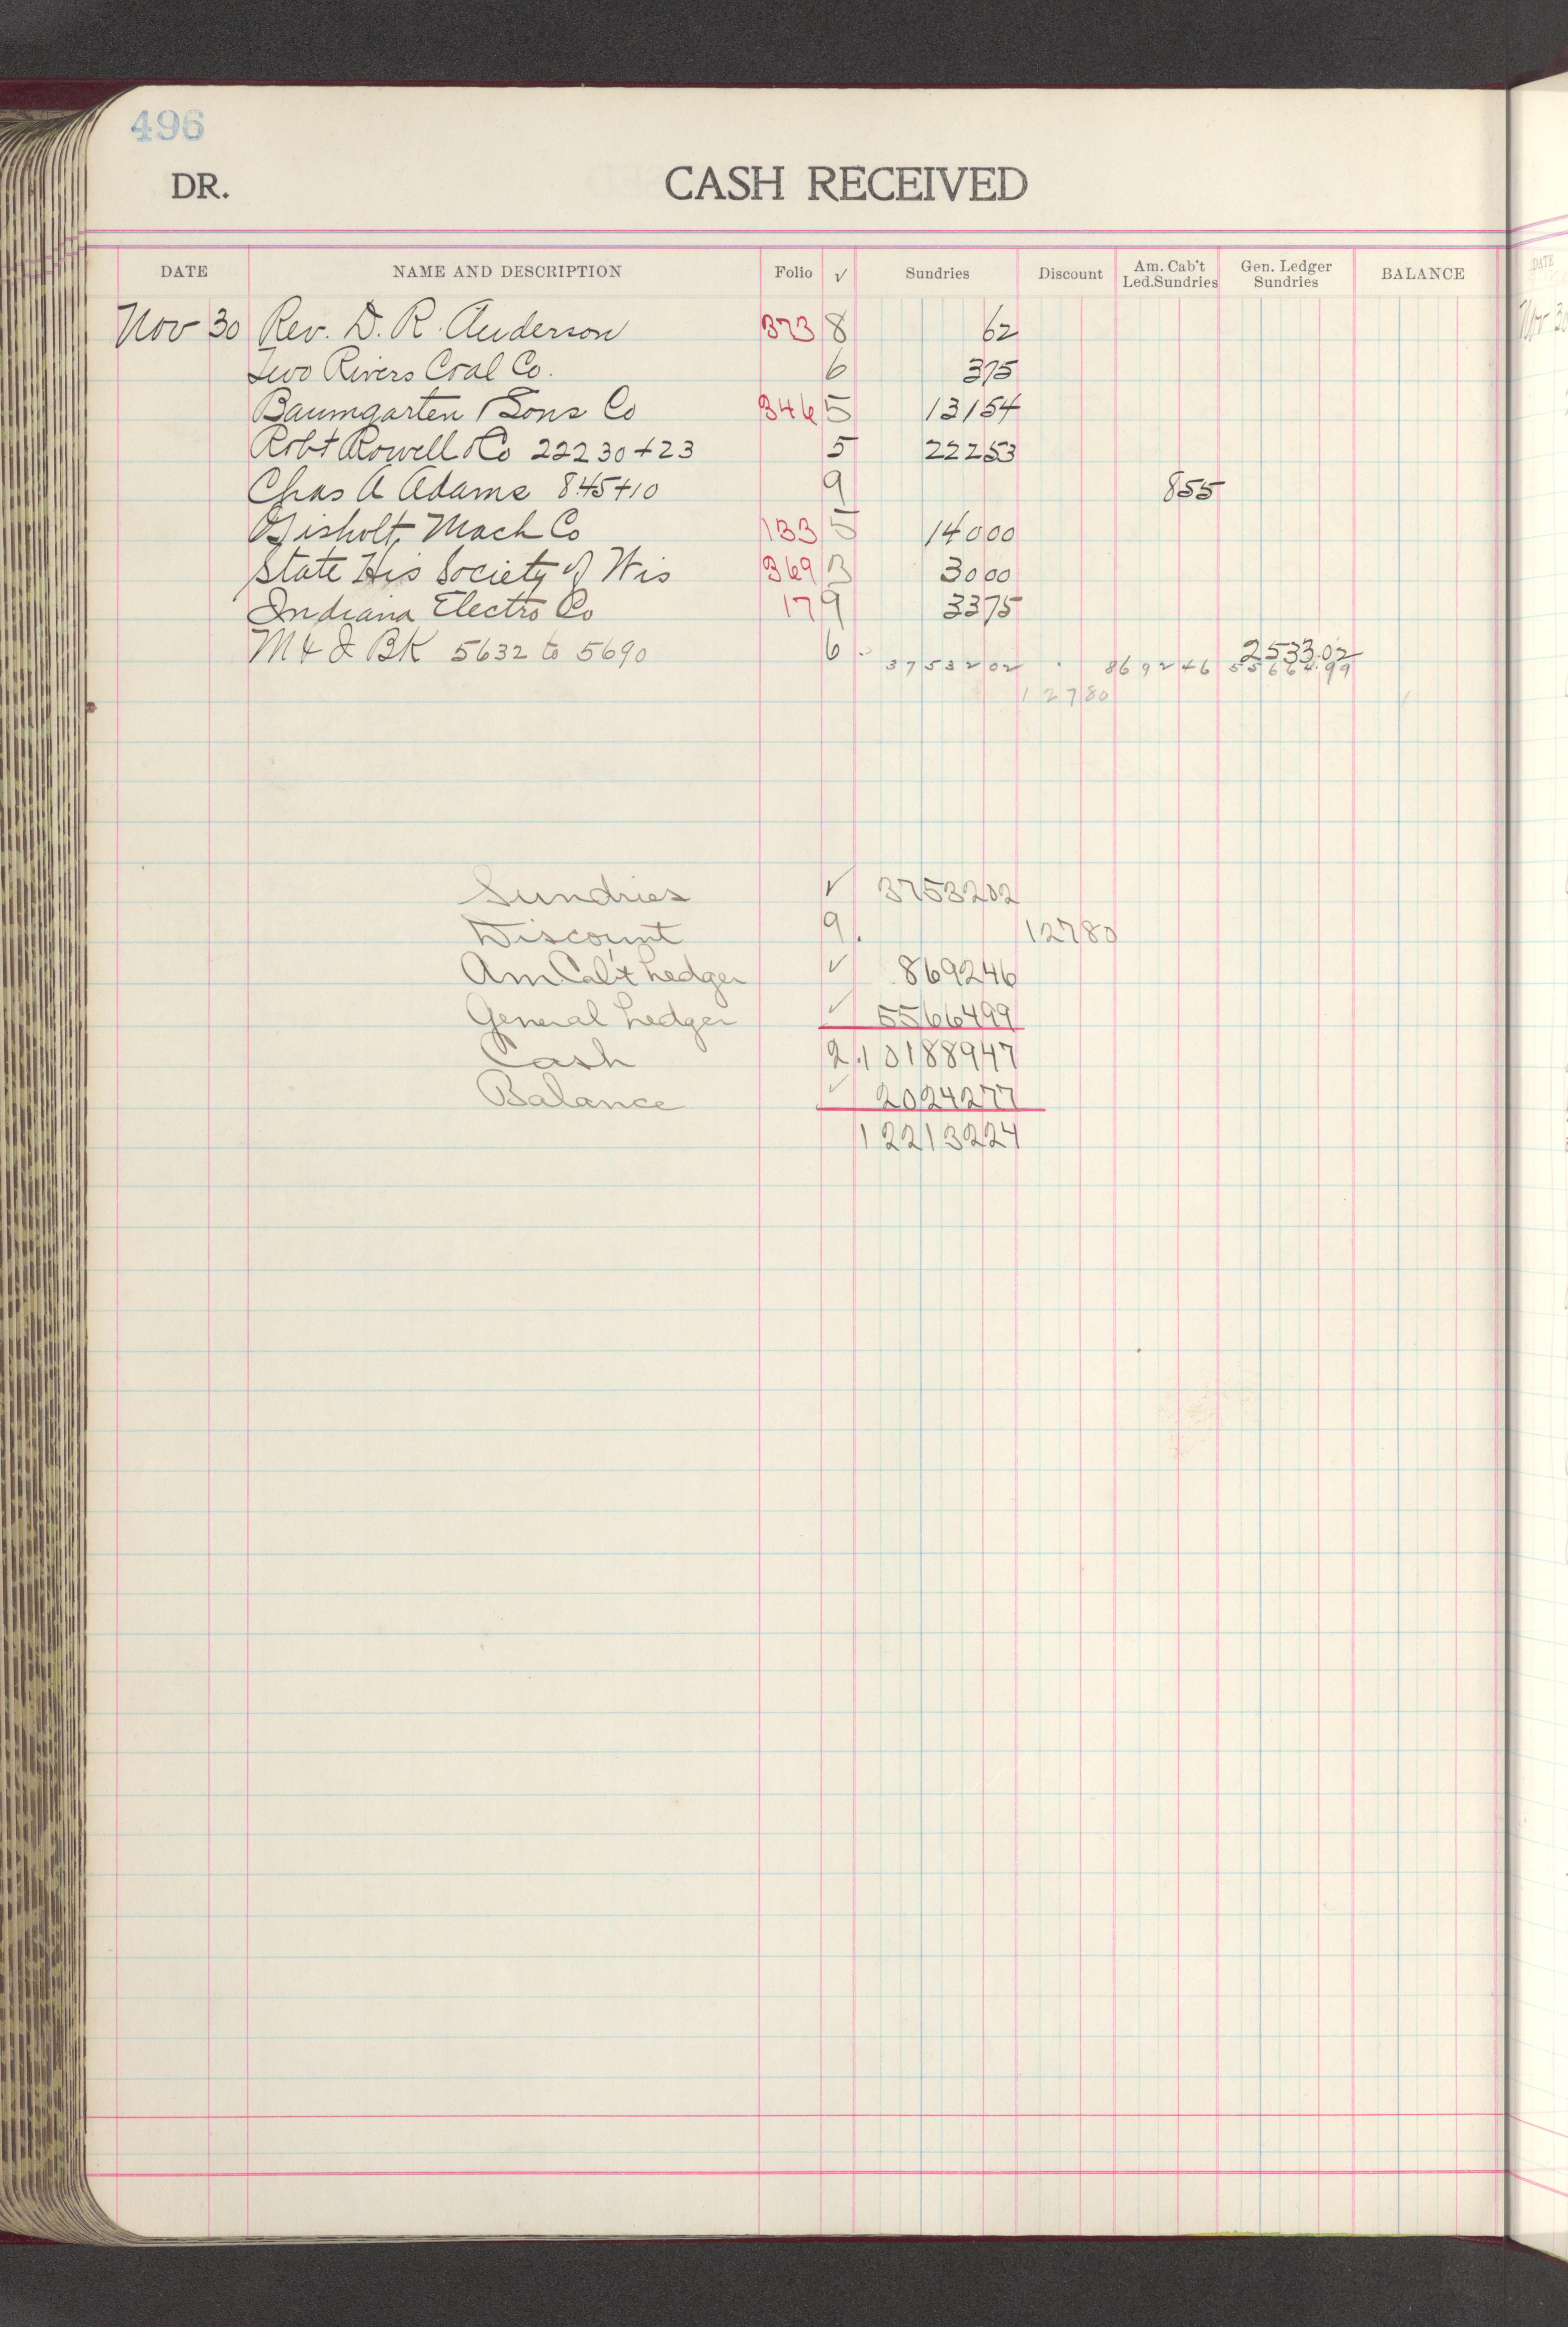 496
DR. CASH RECEIVED
DATE NAME AND DESCRIPTION Folio √ Sundries Discount Am. Cab't Led.Sundries Gen. Ledger Sundries BALANCE
Nov 30 Rev. D. R. Anderson 373 8 62
Two Rivers Coal Co. 6 375
Baumgarten & Sons Co 346 5 13154
Robt Rowell Co 22230+23 5 22253
Chas A Adams 845+10 9 855
Gisholt Mach Co 133 5 14000
State His Society of Wis 369 3 3000
Indiana Electro Co 17 9 3375
M & I BK 5632 to 5690 6 2533.02
3753202 869246 55664.99
12780
Sundries √ 3753202
Discount 9. 12780
Am Cab't Ledger √ 869246
General Ledger √ 5566499
Cash 2. 10188947
Balance √ 2024277
12213224